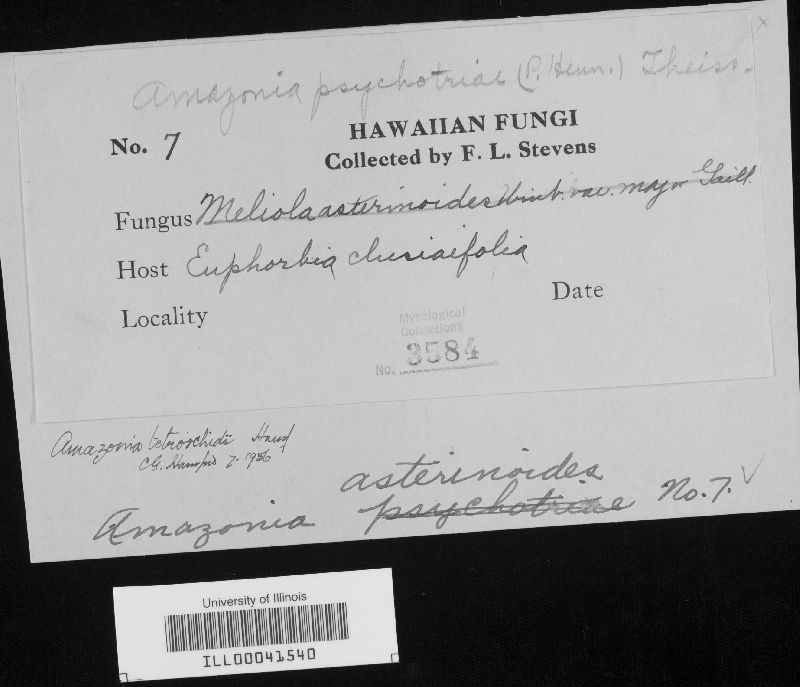 Amazonia psychotriae (P. Henn.) Theiss.
HAWAIIAN FUNGI
No. 7
Collected by F. L. Stevens
Fungus Meliola asterinoides Wint. var. major Gaill.
Host Euphorbia clusiaifolia
Locality
Date
Mycological
Collections
No. 3584
Amazonia Hansf
7-1956
asterinoides
Amazonia psychotriae No. 7. ✓
University of Illinois
ILL00041540